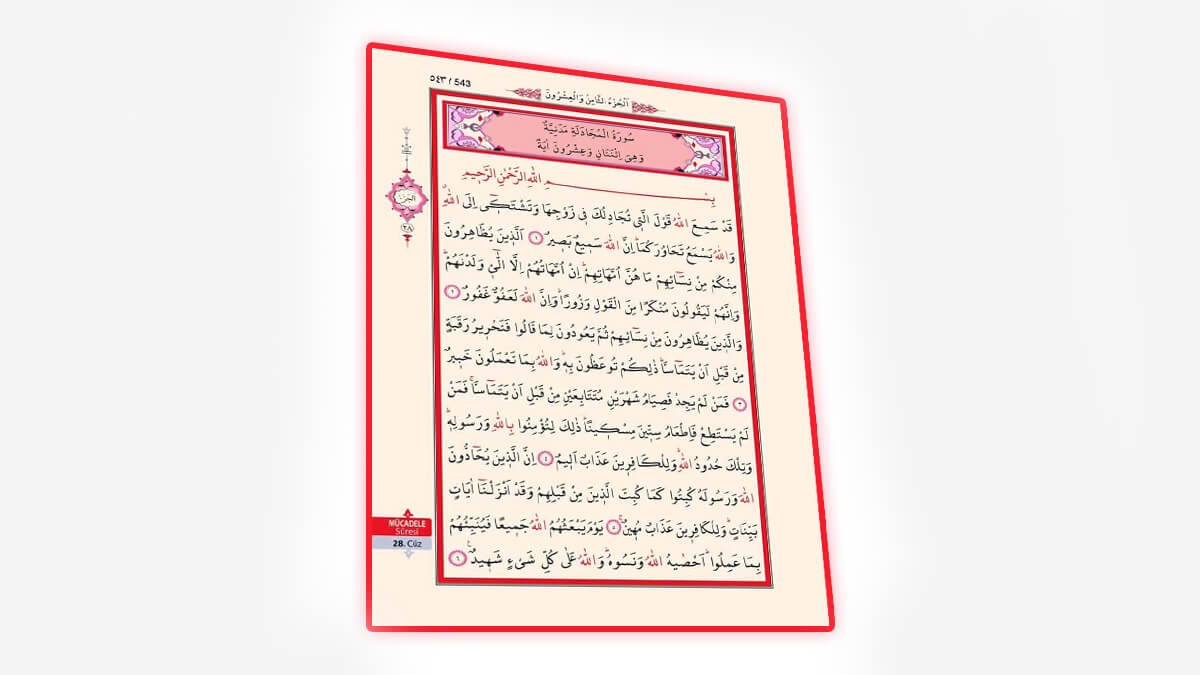 ٥٤٣ / 543
اَلْجُزْءُ الثَّامِنُ وَالْعِشْرُونَ
سُورَةُ الْمُجَادَلَةِ مَدَنِيَّةٌ
وَهِىَ اِثْنَتَانِ وَعِشْرُونَ اٰيَةً
بِسْمِ اللّٰهِ الرَّحْمٰنِ الرَّحٖيمِ
قَدْ سَمِعَ اللّٰهُ قَوْلَ الَّتٖى تُجَادِلُكَ فٖى زَوْجِهَا وَتَشْتَكٖٓى اِلَى اللّٰهِۗ
وَاللّٰهُ يَسْمَعُ تَحَاوُرَكُمَاۜ اِنَّ اللّٰهَ سَمٖيعٌ بَصٖيرٌ ﴿١﴾ اَلَّذٖينَ يُظَاهِرُونَ
مِنْكُمْ مِنْ نِسَٓائِهِمْ مَا هُنَّ اُمَّهَاتِهِمْۜ اِنْ اُمَّهَاتُهُمْ اِلَّا الّٰٓـٖٔى وَلَدْنَهُمْۜ
وَاِنَّهُمْ لَيَقُولُونَ مُنْكَرًا مِنَ الْقَوْلِ وَزُورًاۜ وَاِنَّ اللّٰهَ لَعَفُوٌّ غَفُورٌ ﴿٢﴾
وَالَّذٖينَ يُظَاهِرُونَ مِنْ نِسَٓائِهِمْ ثُمَّ يَعُودُونَ لِمَا قَالُوا فَتَحْرٖيرُ رَقَبَةٍ
مِنْ قَبْلِ اَنْ يَتَمَٓاسَّاۜ ذٰلِكُمْ تُوعَظُونَ بِهٖۜ وَاللّٰهُ بِمَا تَعْمَلُونَ خَبٖيرٌ
﴿٣﴾ فَمَنْ لَمْ يَجِدْ فَصِيَامُ شَهْرَيْنِ مُتَتَابِعَيْنِ مِنْ قَبْلِ اَنْ يَتَمَٓاسَّاۚ فَمَنْ
لَمْ يَسْتَطِعْ فَاِطْعَامُ سِتّٖينَ مِسْكٖينًاۜ ذٰلِكَ لِتُؤْمِنُوا بِاللّٰهِ وَرَسُولِهٖۜ
وَتِلْكَ حُدُودُ اللّٰهِۜ وَلِلْكَافِرٖينَ عَذَابٌ اَلٖيمٌ ﴿٤﴾ اِنَّ الَّذٖينَ يُحَٓادُّونَ
اللّٰهَ وَرَسُولَهُ كُبِتُوا كَمَا كُبِتَ الَّذٖينَ مِنْ قَبْلِهِمْ وَقَدْ اَنْزَلْنَٓا اٰيَاتٍ
بَيِّنَاتٍۜ وَلِلْكَافِرٖينَ عَذَابٌ مُهٖينٌۚ ﴿٥﴾ يَوْمَ يَبْعَثُهُمُ اللّٰهُ جَمٖيعًا فَيُنَبِّئُهُمْ
بِمَا عَمِلُواۜ اَحْصٰيهُ اللّٰهُ وَنَسُوهُۜ وَاللّٰهُ عَلٰى كُلِّ شَىْءٍ شَهٖيدٌ۟ ﴿٦﴾
٢٨
MÜCADELE
Sûresi
28. Cüz